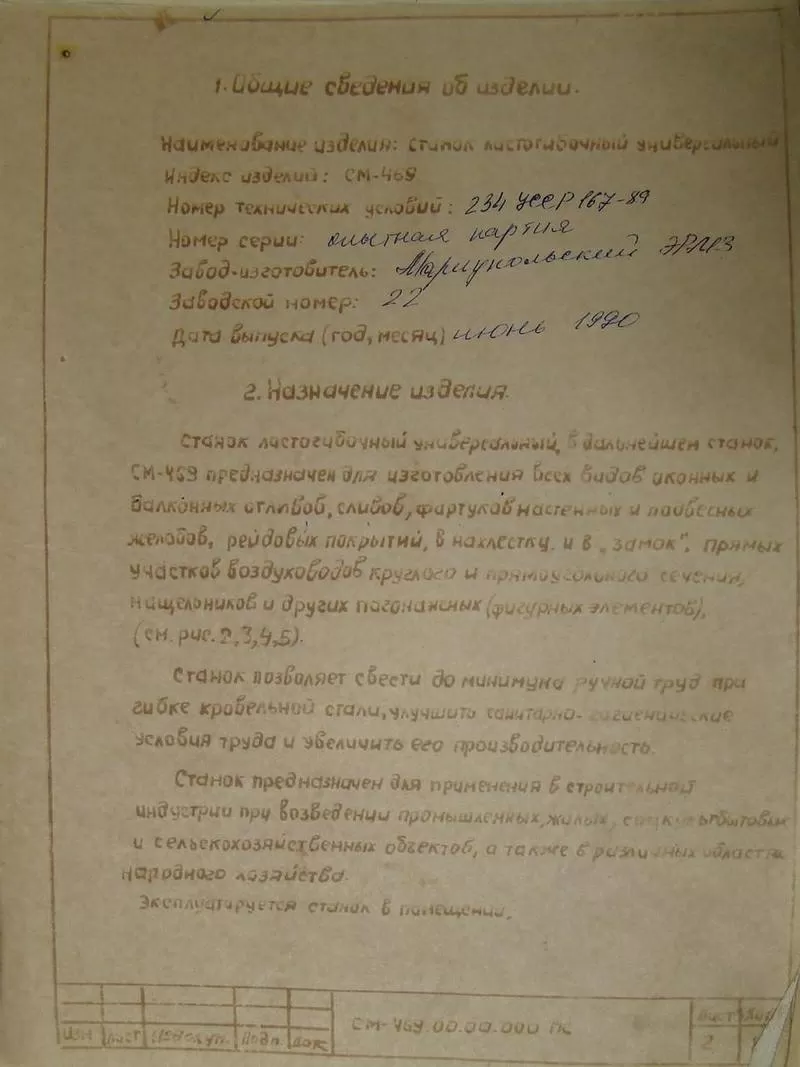 1. Общие сведения об изделии.
Наименование изделия: станок листогибочный универсальный
Индекс изделий: СМ-469
Номер технических условий: 234 УССР 167-89
Номер серии: опытная партия
Завод-изготовитель: Мариупольский ЭРМЗ
Заводской номер: 22
Дата выпуска (год, месяц) июнь 1990
2. Назначение изделия.
Станок листогибочный универсальный, в дальнейшем станок,
СМ-469 предназначен для изготовления всех видов оконных и
балконных отливов, сливов, фартуков настенных и навесных
желобов, рейдовых покрытий, в нахлестку и в "замок", прямых
участков воздуховодов круглого и прямоугольного сечения,
нащельников и других погонажных (фигурных элементов),
(см. рис. 2,3,4,5).
Станок позволяет свести до минимума ручной труд при
гибке кровельной стали, улучшить санитарно-гигиенические
условия труда и увеличить его производительность.
Станок предназначен для применения в строительной
индустрии при возведении промышленных, жилых,
и сельскохозяйственных объектов, а также в различных областях
народного хозяйства.
Эксплуатируется станок в помещении.
СМ-469.00.00.000 ПС
Изм Лист № докум. Подп. Лист
2